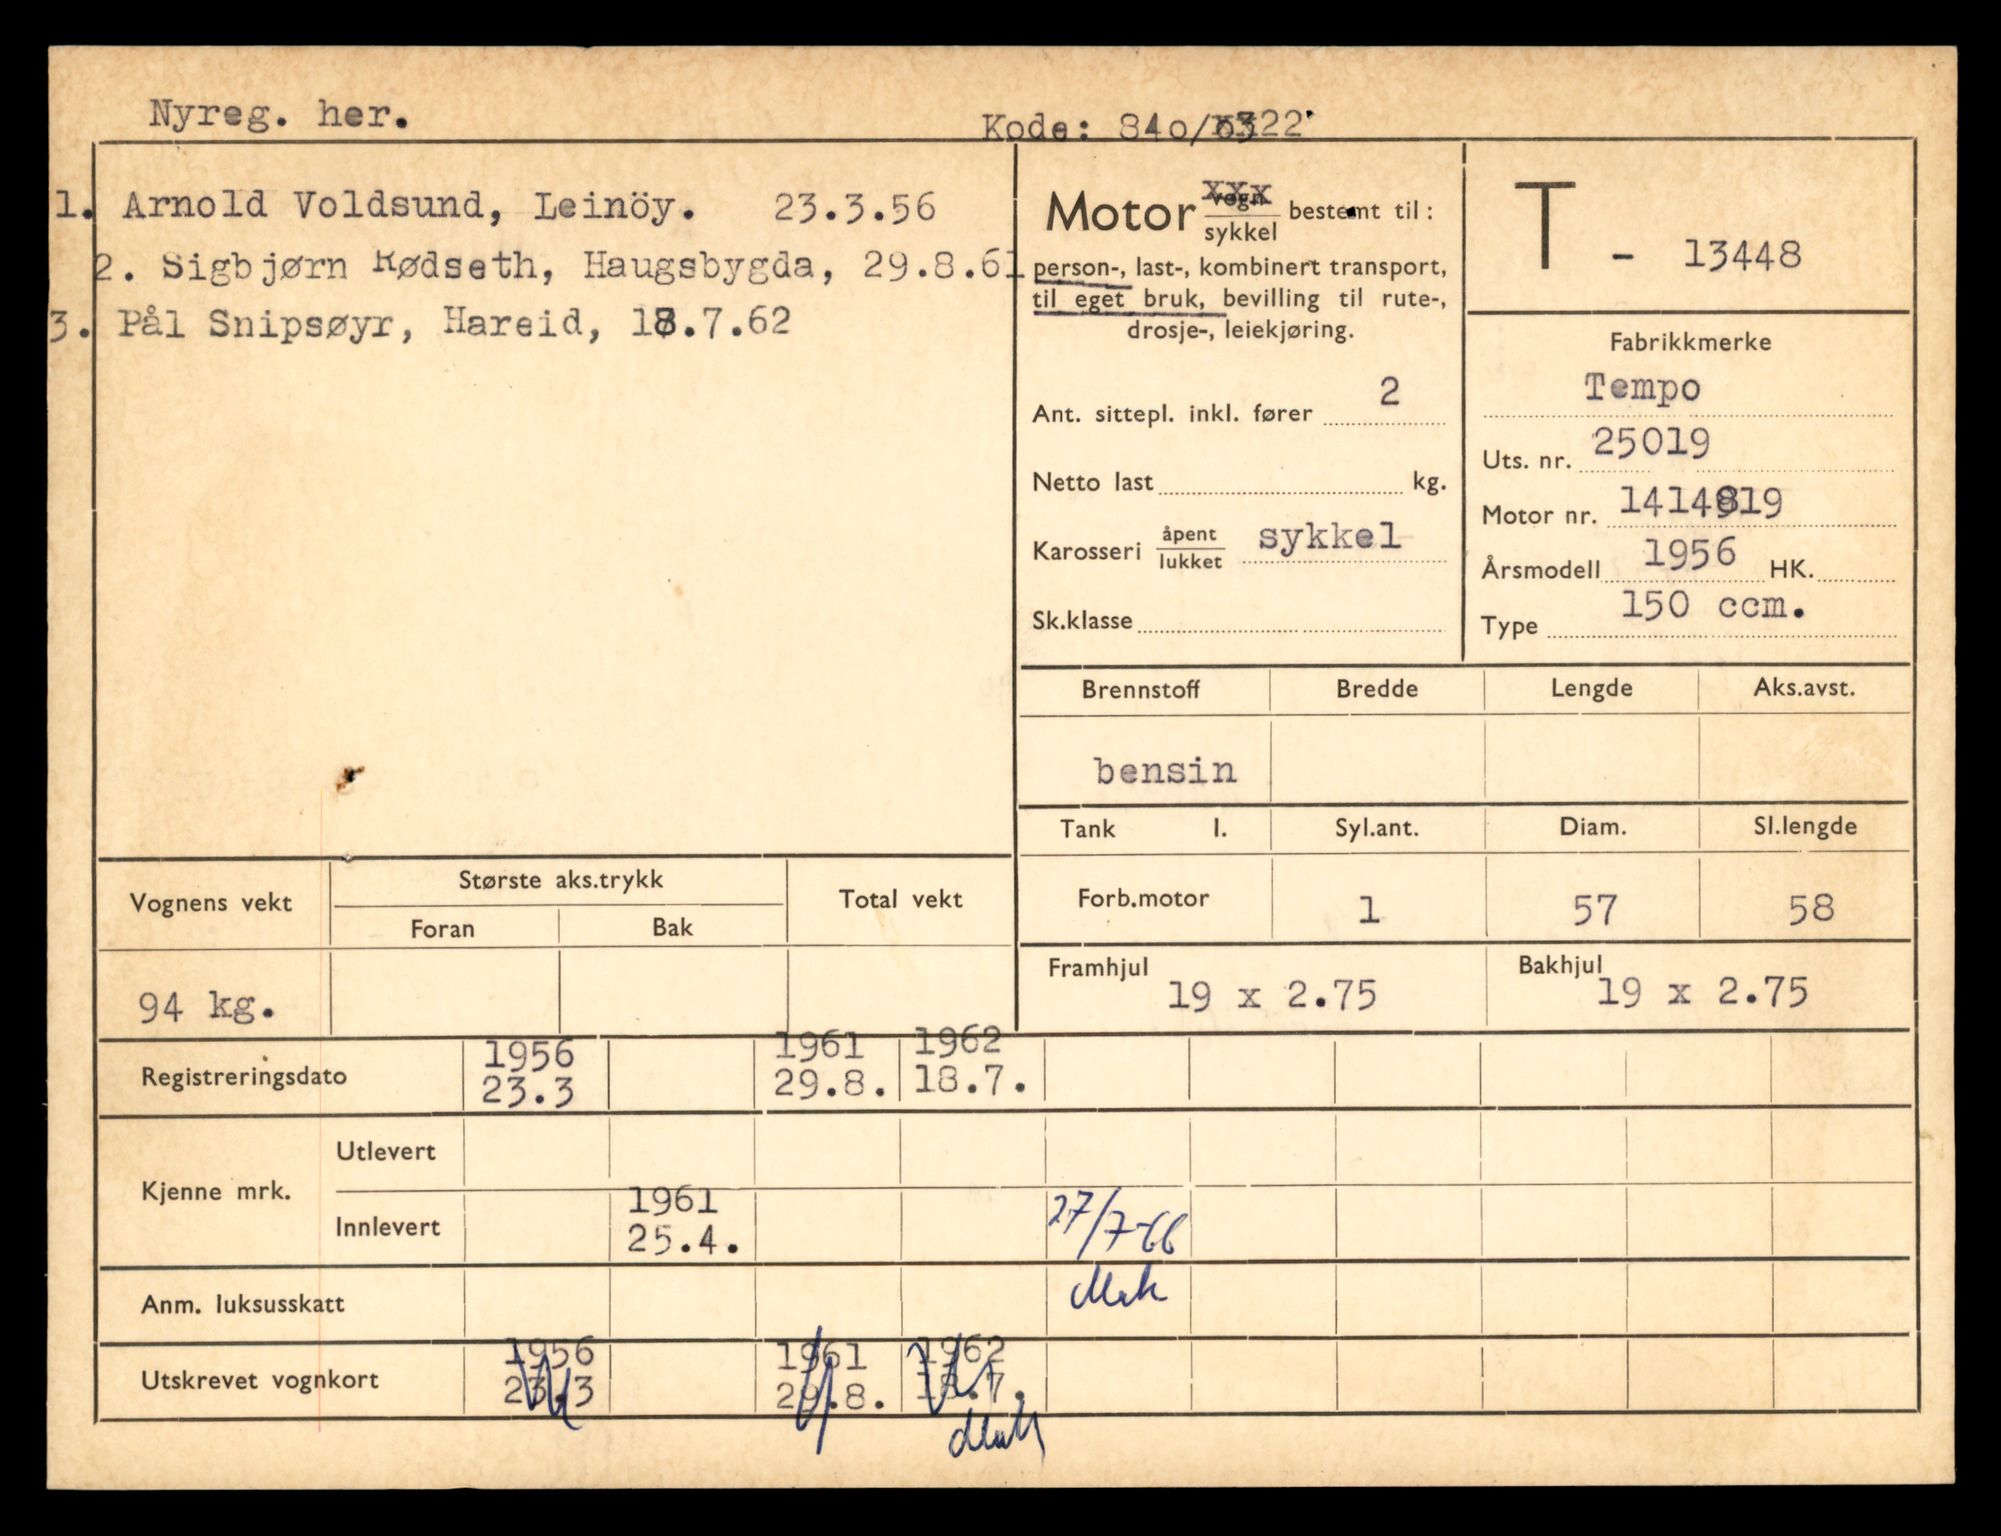 Nyreg. her.
Kode: 84o/22
1. Arnold Voldsund, Leinöy. 23.3.56
2. Sigbjørn Rødseth, Haugsbygda, 29.8.61
3. Pål Snipsøyr, Hareid, 18.7.62
Motor vogn/sykkel bestemt til:
person-, last-, kombinert transport,
til eget bruk, bevilling til rute-,
drosje-, leiekjøring.
Ant. sittepl. inkl. fører 2
Netto last kg.
Karosseri åpent/lukket sykkel
Sk.klasse
T - 13448
Fabrikkmerke
Tempo
Uts. nr. 25019
Motor nr. 1414819
Årsmodell 1956 HK.
Type 150 ccm.
Brennstoff Bredde Lengde Aks.avst.
bensin
Tank l. Syl.ant. Diam. Sl.lengde
Forb.motor 1 57 58
Framhjul 19 x 2.75 Bakhjul 19 x 2.75
Vognens vekt Største aks.trykk Total vekt
Foran Bak
94 kg.
Registreringsdato 1956 23.3 1961 29.8. 1962 18.7.
Kjenne mrk. Utlevert
Innlevert 1961 25.4. 27/7-66
Anm. luksusskatt
Utskrevet vognkort 1956 23.3 1961 29.8. 1962 18.7.